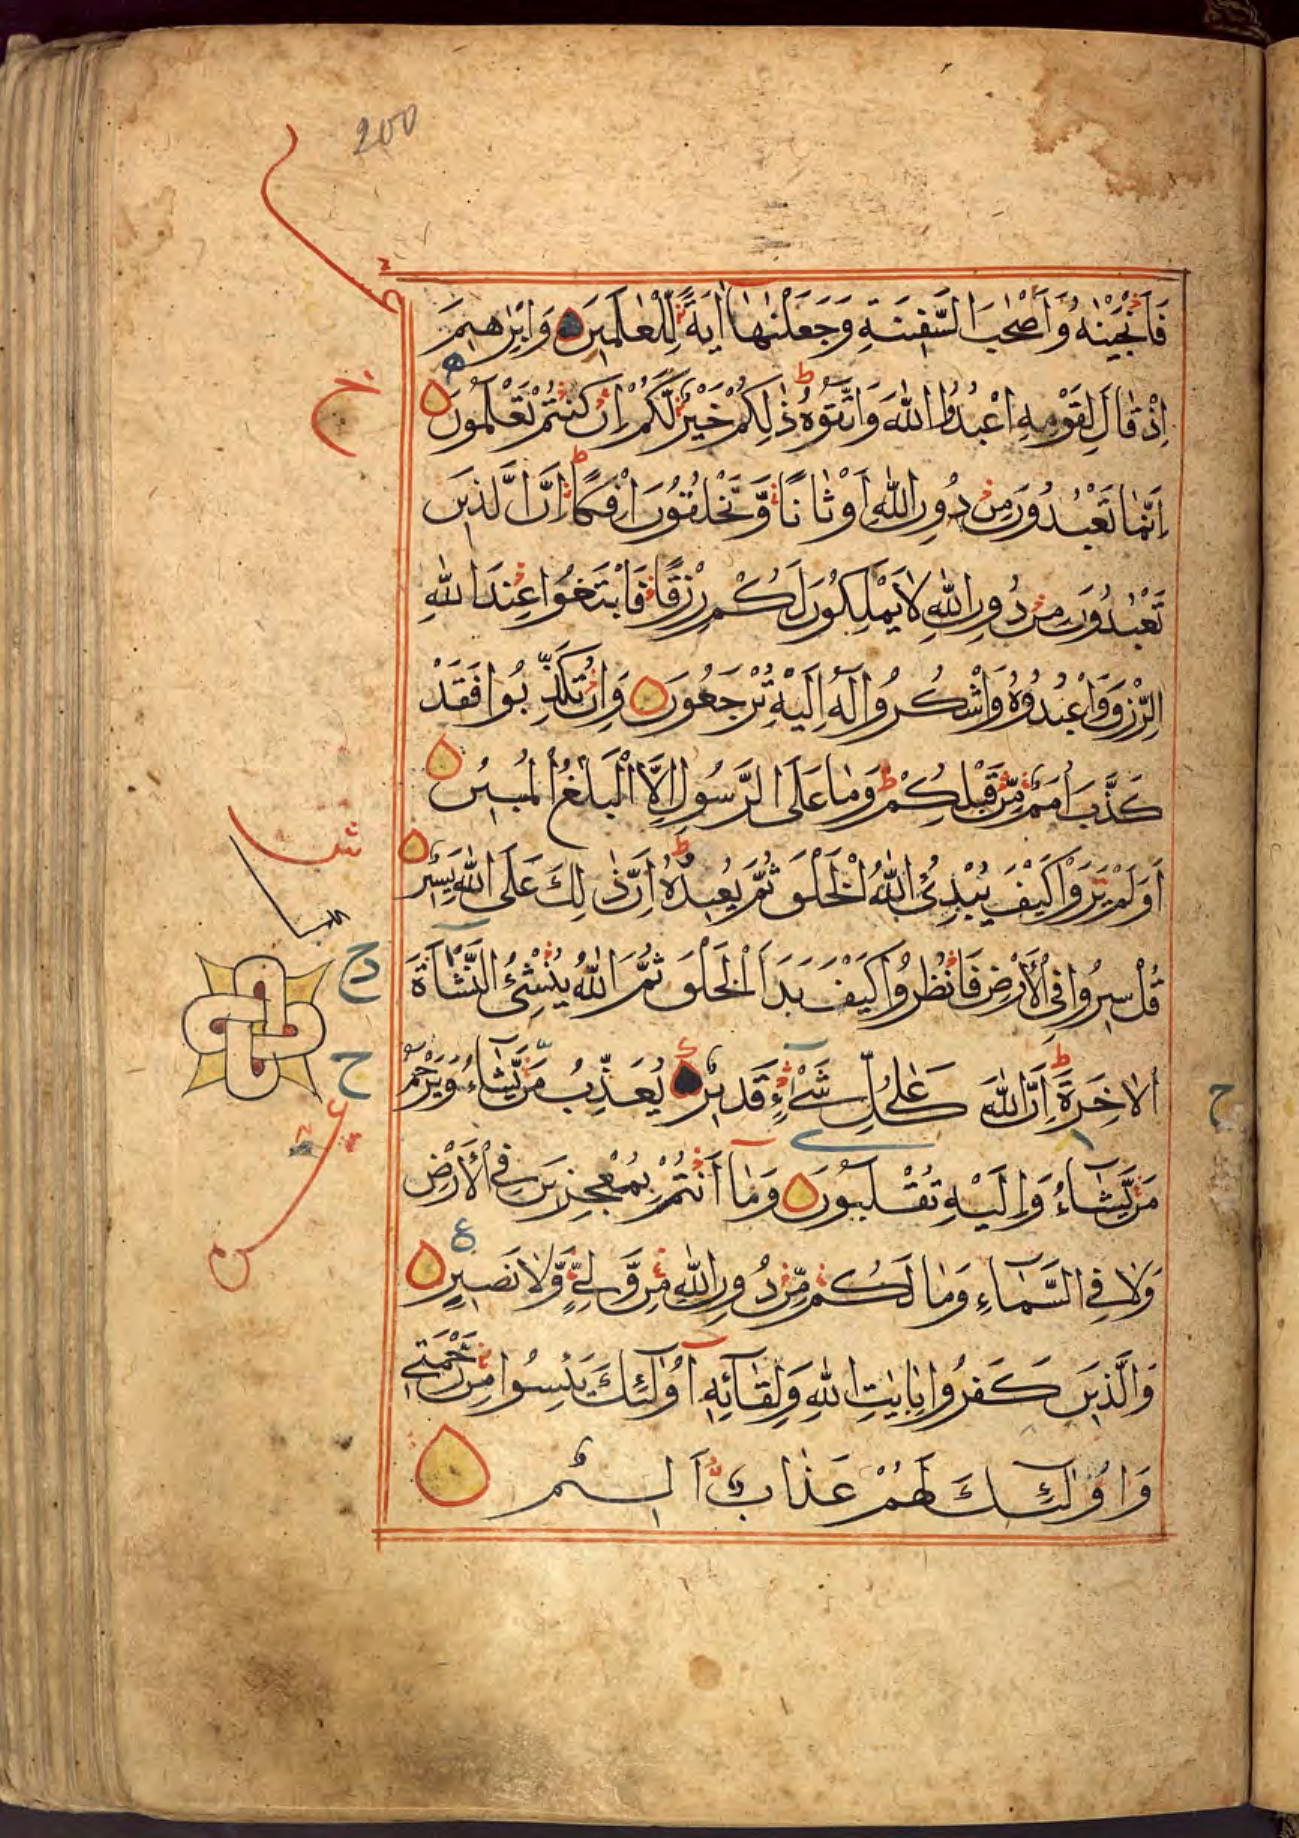 200
فَاَنْجَيْنٰهُ وَاَصْحٰبَ السَّفِينَةِ وَجَعَلْنٰهَآ اٰيَةً لِلْعٰلَمِينَ وَاِبْرٰهِيمَ
اِذْ قَالَ لِقَوْمِهِ اعْبُدُوا اللّٰهَ وَاتَّقُوهُ ط ذٰلِكُمْ خَيْرٌ لَّكُمْ اِنْ كُنْتُمْ تَعْلَمُونَ
اِنَّمَا تَعْبُدُونَ مِنْ دُونِ اللّٰهِ اَوْثَانًا وَّتَخْلُقُونَ اِفْكًا ط اِنَّ الَّذِينَ
تَعْبُدُونَ مِنْ دُونِ اللّٰهِ لَا يَمْلِكُونَ لَكُمْ رِزْقًا فَابْتَغُوا عِنْدَ اللّٰهِ
الرِّزْقَ وَاعْبُدُوهُ وَاشْكُرُوا لَهُ اِلَيْهِ تُرْجَعُونَ وَاِنْ تُكَذِّبُوا فَقَدْ
كَذَّبَ اُمَمٌ مِّنْ قَبْلِكُمْ ط وَمَا عَلَى الرَّسُولِ اِلَّا الْبَلٰغُ الْمُبِينُ
اَوَلَمْ يَرَوْا كَيْفَ يُبْدِئُ اللّٰهُ الْخَلْقَ ثُمَّ يُعِيدُهُ ط اِنَّ ذٰلِكَ عَلَى اللّٰهِ يَسِيرٌ
قُلْ سِيرُوا فِي الْاَرْضِ فَانْظُرُوا كَيْفَ بَدَاَ الْخَلْقَ ثُمَّ اللّٰهُ يُنْشِئُ النَّشْاَةَ
الْاٰخِرَةَ ط اِنَّ اللّٰهَ عَلٰى كُلِّ شَيْءٍ قَدِيرٌ يُعَذِّبُ مَنْ يَّشَاءُ وَيَرْحَمُ
مَنْ يَّشَاءُ وَاِلَيْهِ تُقْلَبُونَ وَمَآ اَنْتُمْ بِمُعْجِزِينَ فِي الْاَرْضِ
وَلَا فِي السَّمَآءِ وَمَا لَكُمْ مِّنْ دُونِ اللّٰهِ مِنْ وَّلِيٍّ وَّلَا نَصِيرٍ
وَالَّذِينَ كَفَرُوا بِاٰيٰتِ اللّٰهِ وَلِقَآئِهِ اُولٰٓئِكَ يَئِسُوا مِنْ رَّحْمَتِي
وَاُولٰٓئِكَ لَهُمْ عَذَابٌ اَلِيمٌ